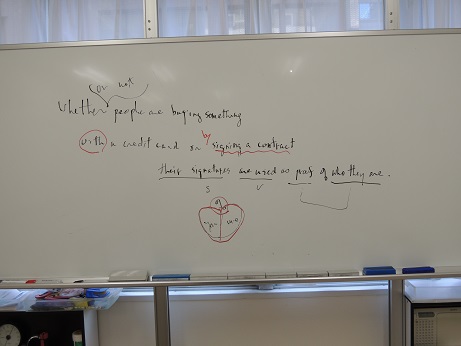 or not
Whether people are buying something
with a credit card or by signing a contract
their signatures are used as proof of who they are.
S V
or